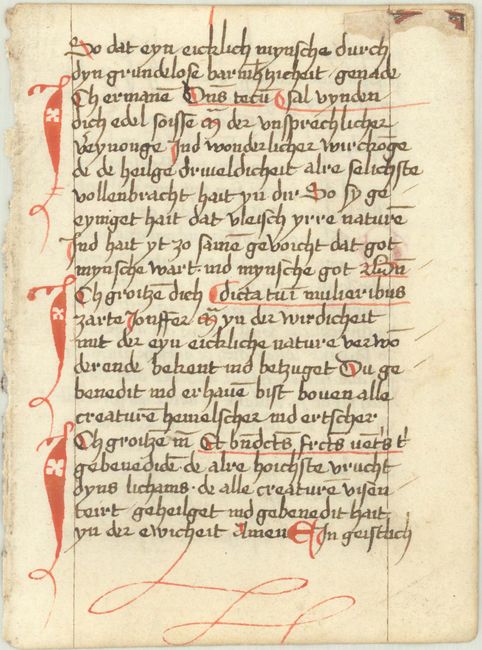 So dat eyn eicklich mynsche durch
dyn grundelose barmhtzicheit genade
Ich ermanē Dn̄s tecū O sal vynden
dich edel soisse m̄ der vnsprechlicher
veynonge Ind wonderlicher wirckōge
de de heilge driueldicheit alre selichste
vollenbracht hait yn dir So sy ge
eyniget hait dat vleisch yrre naturē
Ind hait yt zo samē gevoicht dat got
mynsche wart ind mynsche got
Ich groitzē dich Bn̄dicta tu ī mulieribus
zarte Jonffer m̄ yn der wirdicheit
mit der eyn eickliche nature verwō
derende bekent ind betzuget Du ge
benedit ind erhauē bist boven alle
creaturē hemelscher ind ertscher
Ich groitze m Et bn̄dcts frcts uent's t'
gebenedidē de alre hoichste vrucht
dyns lichams de alle creaturē visen
teirt geheilget ind gebenedit hait
yn der ewicheit Amen EIn geistlich